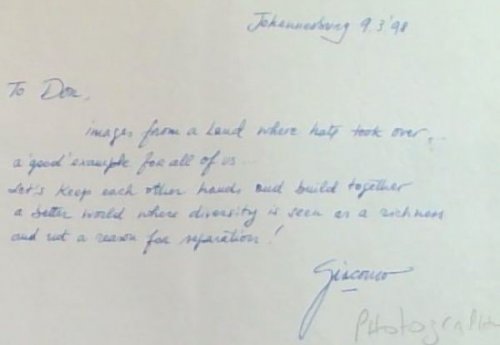 Johannesburg 9.3'98
To Don,
images from a land where hate took over...
a 'good' example for all of us...
Let's keep each other hands and build together
a better world where diversity is seen as a richness
and not a reason for separation!
Giacomo